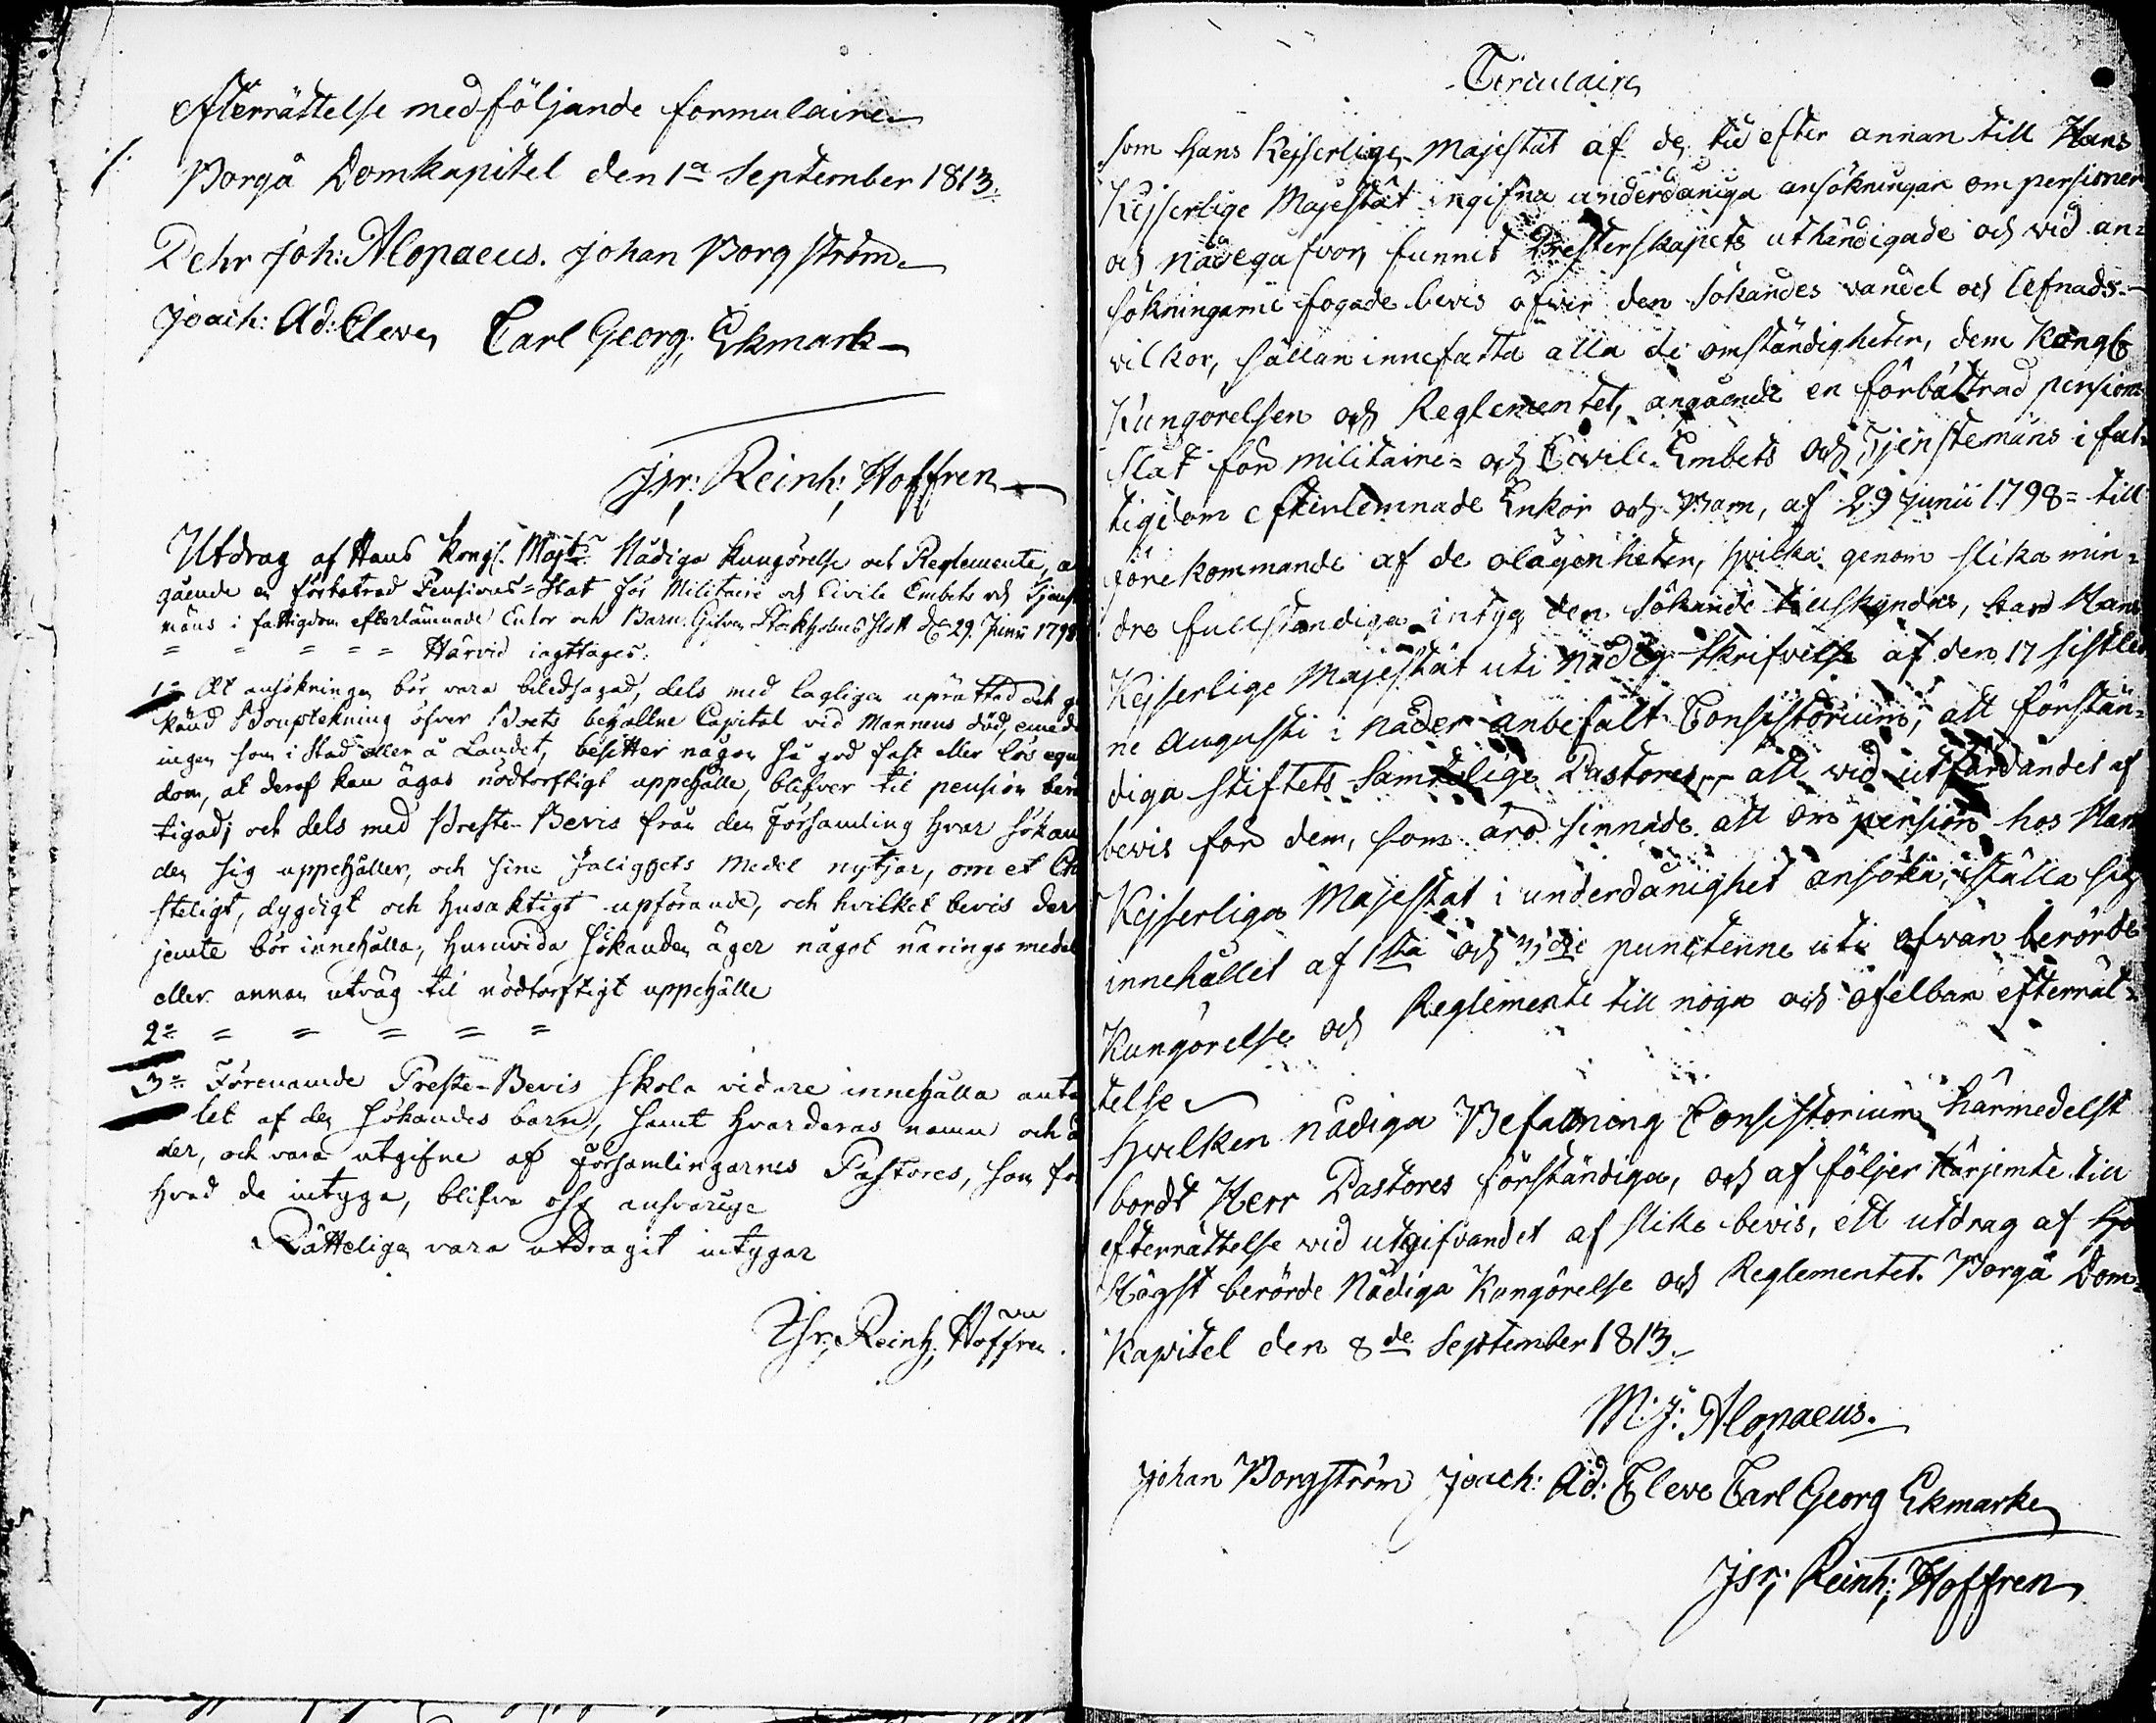 Efterrättelse med följande formulaire
./. Borgå Domkapitel den 1a September 1813.
Pehr Joh: Alopaeus. Johan Borgström
Joach: Ad: Cleve Carl Georg Ekmark
Isr: Reinh: Hoffren
Utdrag af Hans Kongl. Majts Nådiga Kungörelse och Reglemente, an
gående en förbättrad Pensions-Stat för Militaire och Civile Embets och Tjenste
mäns i fattigdom efterlämnade Enkor och Barn. Gifven Stockholms Slott d. 29. Junii 1798
= = = = = Härvid iagttages:
1o At ansökningen bör vara beledsagad, dels med lagligen uprättad och
känd Bouptekning öfver Boets behållne Capital vid Mannens död, emeda
ingen som i Stad eller å Landet, besitter någon så god fast eller lös egen
dom, at deraf kan ägas nödtorftigt uppehälle, blifver til pension berät
tigad; och dels med Preste-Bevis från den Församling hvar Sökan
den sig uppehåller, och sine Saliggets Medel nytjar, om et Chri
steligt, dygdigt och Husaktigt upförande, och hvilket bevis der
jemte bör innehålla, huruvida Sökanden äger något närings medel
eller annan utväg til nödtorftigt uppehälle
2o = = = = =
3o Förenämde Preste-Bevis skola vidare innehålla anta
let af den Sökandes barn, samt hvarderas namn och ål
der, och vara utgifne af Församlingarnes Pastores, som för
hvad de intyga, blifva ock ansvarige
Rätteligen vara utdragit intygar
Isr: Reinh: Hoffren
Circulaire
Som Hans Kejserlige Majestät af de tid efter annan till Hans
Kejserlige Majestät ingifna underdåniga ansökningar om pensioner
och nådegåfvor, funnit Presterskapets uthändigade och vid an=
sökningarne fogade bevis öfver den Sökandes vandel och lefnads-
vilkor, sällan innefatta alla de omständigheter, dem Kongl.
Kungörelsen och Reglementet, angående en förbättrad pensions
Stat för militaire= och Civile Embets och Tjenstemäns i fat=
tigdom efterlemnade Enkor och Barn, af 29 Junii 1798= till
förekommande af de olägenheter, hvilka genom slika min=
dre fullständiga intyg den Sökande tillskyndas, har Hans
Kejserlige Majestät uti Nådig Skrifvelse af den 17 sistled
ne Augusti i Nåder anbefalt Consistorium, att förstän=
diga Stiftets Samtelige Pastores, att vid utfärdandet af
bevis för dem, som äro sinnade att om pension hos Hans
Kejserliga Majestät i underdånighet ansöka, ställa sig
innehållet af 1sta och 3dje punctenne uti ofvan berörde
Kungörelse och Reglemente till noga och ofelbar efterrät=
telse
Hvilken nådiga Befallning Consistorium härmedelst
bordt Herr Pastores förständiga, och af följer härjemte till
efterrättelse vid utgifvandet af slike bevis, ett utdrag af Hö
stögst berörde Nådiga Kungörelse och Reglementet. Borgå Dom=
Kapitel den 8de September 1813.
M: J: Alopaeus.
Johan Borgström Joach: Ad: Cleve Carl Georg Ekmark
Isr: Reinh: Hoffren